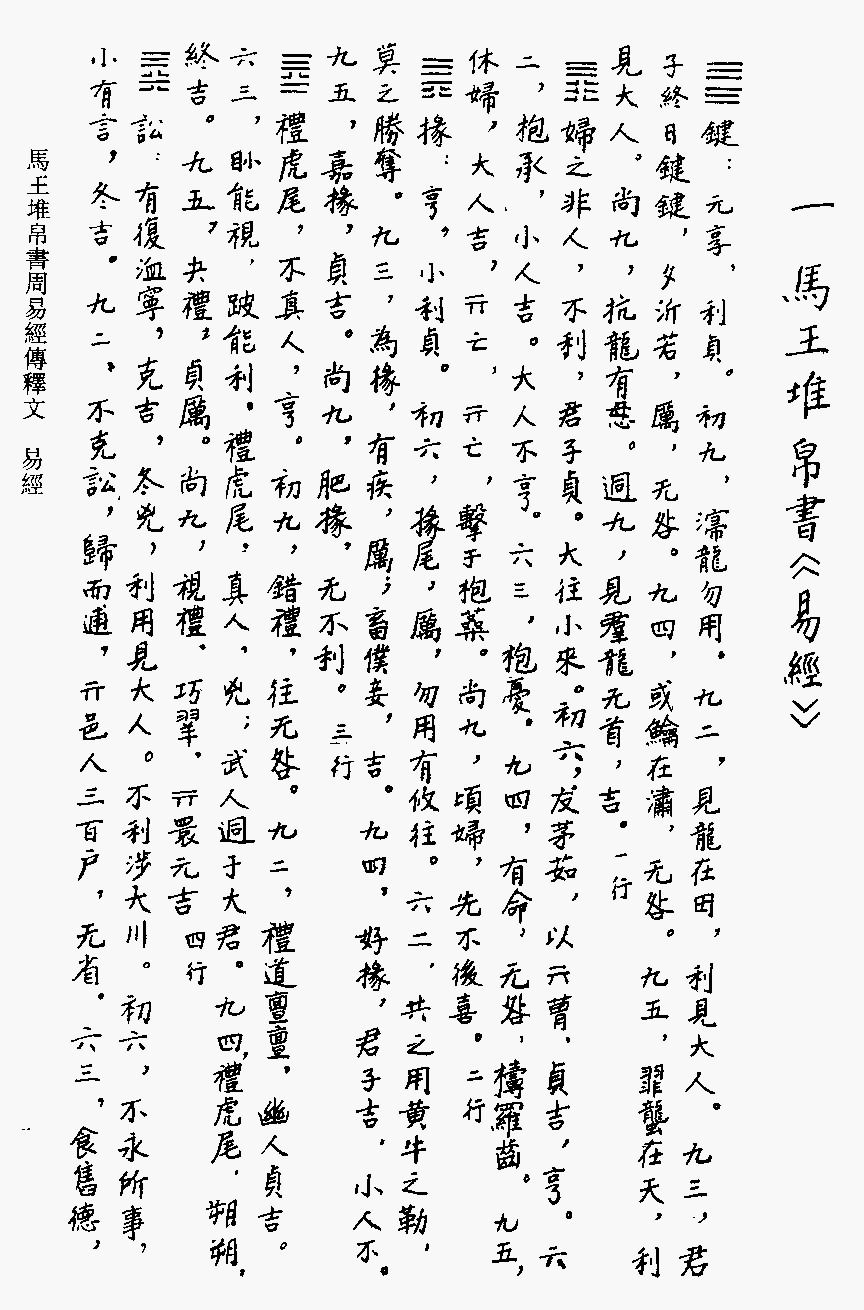 一　馬王堆帛書《易經》
䷀ 鍵：元享，利貞。初九，濡龍勿用。九二，見龍在田，利見大人。九三，君
子終日鍵鍵，夕沂若，厲，无咎。九四，或鱸在潚，无咎。九五，翡龍在天，利
見大人。尚九，抗龍有悬。迵九，見羣龍无首，吉。一行
䷋ 婦之非人，不利，君子貞。大往小來。初六，犮茅茹，以亓曹，貞吉，亨。六
二，抱承，小人吉。大人不亨。六三，抱憂。九四，有命，无咎，檮羅齒。九五，
休婦，大人吉，亓亡，亓亡，擊于抱桑。尚九，頃婦，先不後喜。二行
䷠ 掾：亨，小利貞。初六，掾尾，厲，勿用有攸往。六二，共之用黃牛之勒，
莫之勝奪。九三，為掾，有疾，厲；畜僕妾，吉。九四，好掾，君子吉，小人不。
九五，嘉掾，貞吉。尚九，肥掾，无不利。三行
䷉ 禮虎尾，不真人，亨。初九，錯禮，往无咎。九二，禮道亶亶，幽人貞吉。
六三，眇能視，跛能利。禮虎尾，真人，兇；武人迵于大君。九四，禮虎尾，朔朔，
終吉。九五，夬禮，貞厲。尚九，視禮，巧翠，亓睘元吉 四行
䷅ 訟：有復洫寧，克吉，冬兇，利用見大人。不利涉大川。初六，不永所事，
小有言，冬吉。九二，不克訟，歸而逋，亓邑人三百户，无省。六三，食舊德，
馬王堆帛書周易經傳釋文　易經